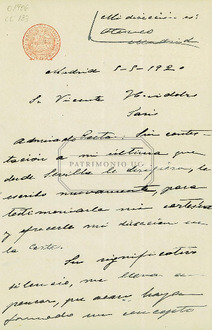 Mi dirección es:
Ateneo
Madrid
Madrid 8-5-1920
Sr. Vicente Huidobro
París
Admirado Poeta: Sin contes-
tación a mi última que
desde Sevilla le dirigiera, le
escribo nuevamente para
testimoniarle mi
y ofrecerle mi dirección en
la Corte.
Su significativo
silencio, me lleva a
pensar, que acaso haya
formado un concepto
PATRIMONIO UC